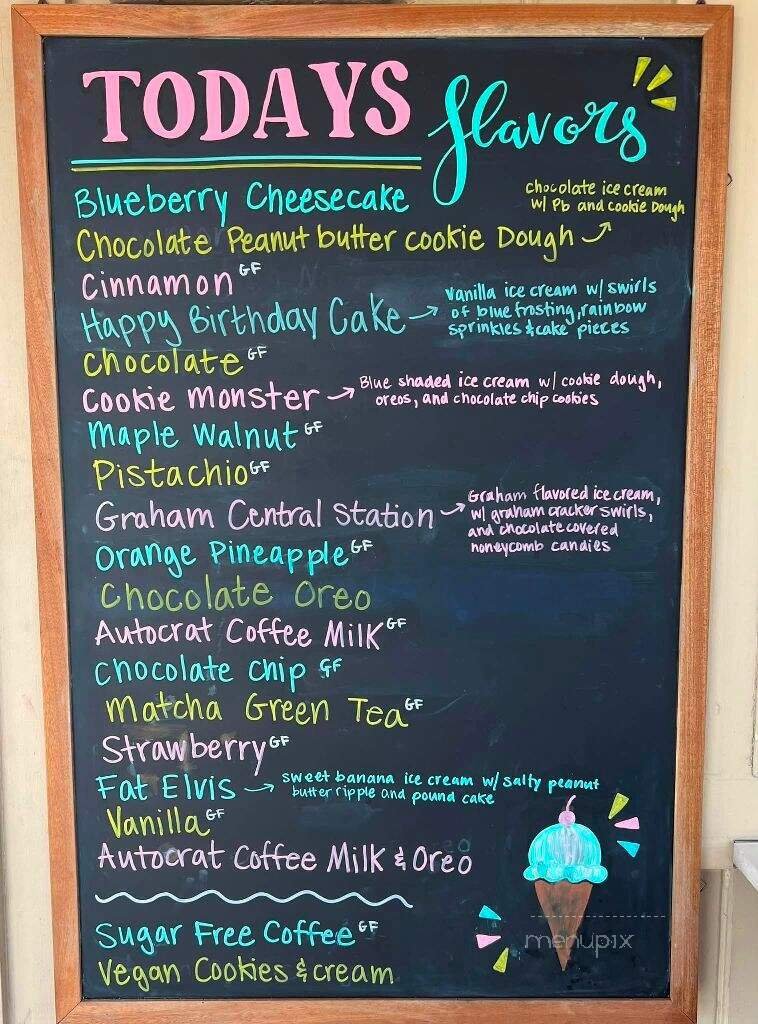 TODAYS flavors
Blueberry Cheesecake
chocolate ice cream
w/ Pb and cookie Dough
Chocolate Peanut butter cookie Dough
Cinnamon GF
Happy Birthday Cake
Vanilla ice cream w/ swirls
of blue frosting, rainbow
sprinkles & cake pieces
Chocolate GF
Cookie Monster
Blue shaded ice cream w/ cookie dough,
oreos, and chocolate chip cookies
Maple Walnut GF
Pistachio GF
Graham Central Station
Graham flavored ice cream,
w/ graham cracker swirls,
and chocolate covered
honeycomb candies
Orange Pineapple GF
Chocolate Oreo
Autocrat Coffee Milk GF
Chocolate Chip GF
Matcha Green Tea GF
Strawberry GF
Fat Elvis
sweet banana ice cream w/ salty peanut
butter ripple and pound cake
Vanilla GF
Autocrat Coffee Milk & Oreo
Sugar Free Coffee GF
Vegan Cookies & cream
menupix